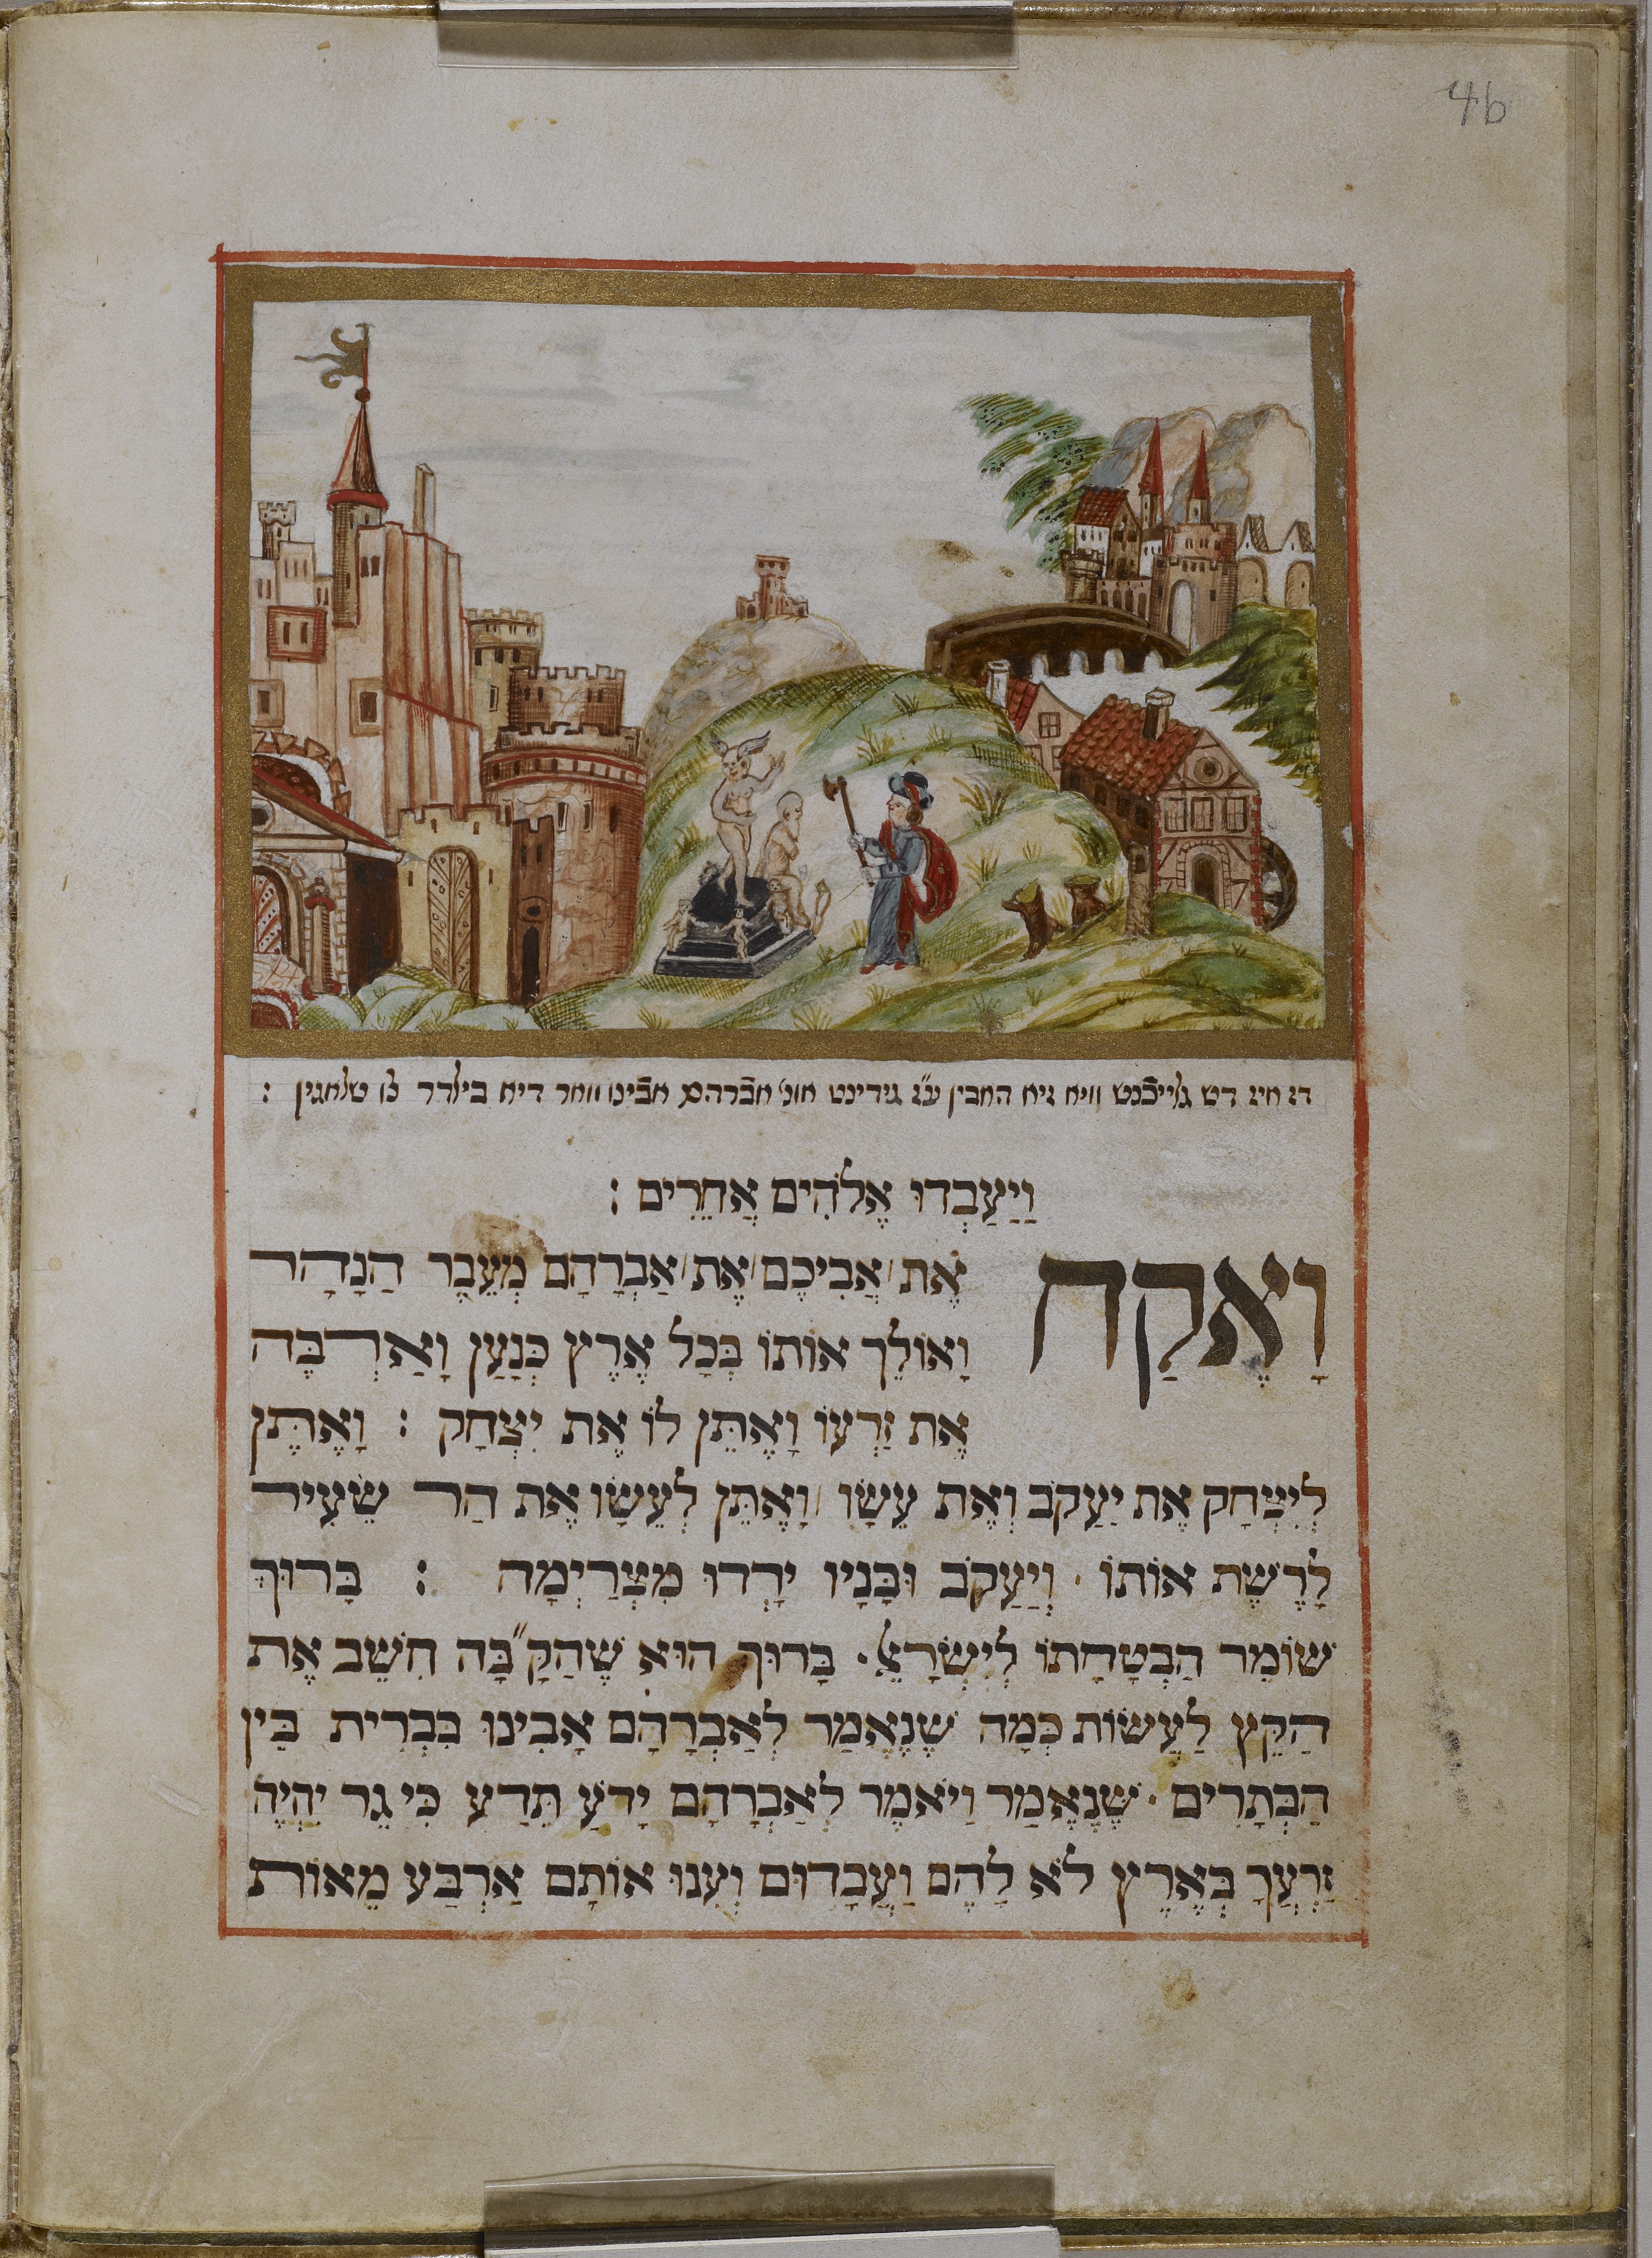 4b
דז איז דש גלייכֿנט וויא זיא האבין ע״ז גידינט אונ׳ אברהם אבֿינו וואר דיא בילדר צו שלאגין :
וַיַּעַבְדוּ אֱלֹהִים אֲחֵרִים :
וָאֶקַח אֶת אֲבִיכֶם אֶת אַבְרָהָם מֵעֵבֶר הַנָהָר
וָאוֹלֵך אוֹתוֹ בְּכָל אֶרֶץ כְּנָעַן וָאַרְבֶּה
אֶת זַרְעוֹ וָאֶתֵּן לוֹ אֶת יִצְחָק : וָאֶתֵּן
לְיִצְחָק אֶת יַעֲקֹב וְאֶת עֵשָׂו וָאֶתֵּן לְעֵשָׂו אֶת הַר שֵׂעִיר
לָרֶשֶׁת אוֹתוֹ · וְיַעֲקֹב וּבָנָיו יָרְדוּ מִצְרַיְמָה : בָּרוּךְ
שׁוֹמֵר הַבְטָחָתוֹ לְיִשְׂרָאֵל · בָּרוּךְ הוּא שֶׁהַקָּ״בָּה חִשֵּׁב אֶת
הַקֵּץ לַעֲשׂוֹת כְּמָה שֶׁנֶאֱמַר לְאַבְרָהָם אָבִינוּ בִּבְרִית בֵּין
הַבְּתָרִים · שֶׁנֶאֱמַר וַיֹאמֶר לְאַבְרָהָם יָדֹעַ תֵּדַע כִּי גֵר יִהְיֶה
זַרְעֲךָ בְּאֶרֶץ לֹא לָהֶם וַעֲבָדוּם וְעִנוּ אוֹתָם אַרְבַּע מֵאוֹת